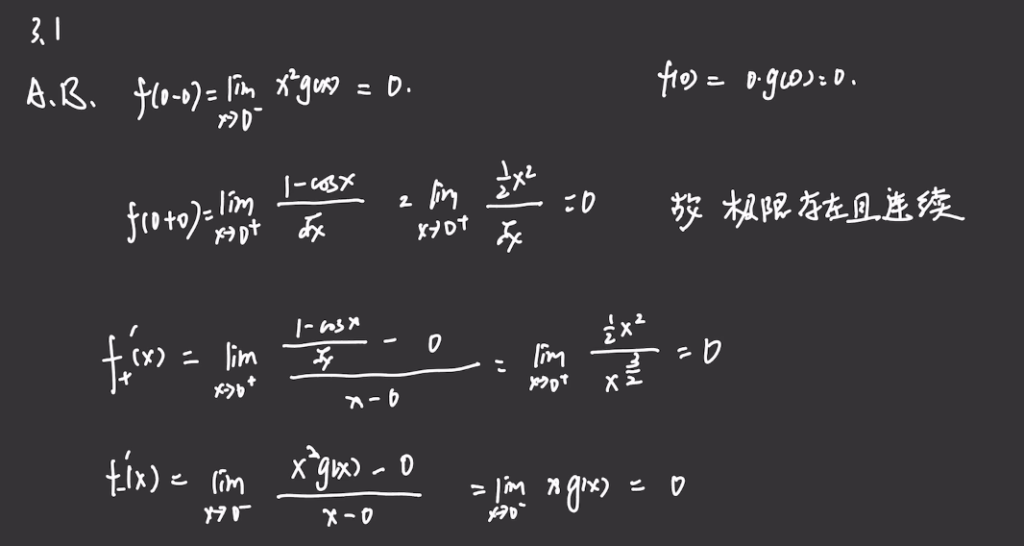 3.1
A.B. f(0-0)=lim_{x→0^-} x²g(x) = 0. f(0) = 0·g(0)=0.
f(0+0)=lim_{x→0^+} (1-cosx)/√x = lim_{x→0^+} (½x²)/√x = 0 故 极限存在且连续
f'_+(x) = lim_{x→0^+} ((1-cosx)/√x - 0)/(x-0) = lim_{x→0^+} (½x²)/x^{3/2} = 0
f'_-(x) = lim_{x→0^-} (x²g(x) - 0)/(x-0) = lim_{x→0^-} x g(x) = 0